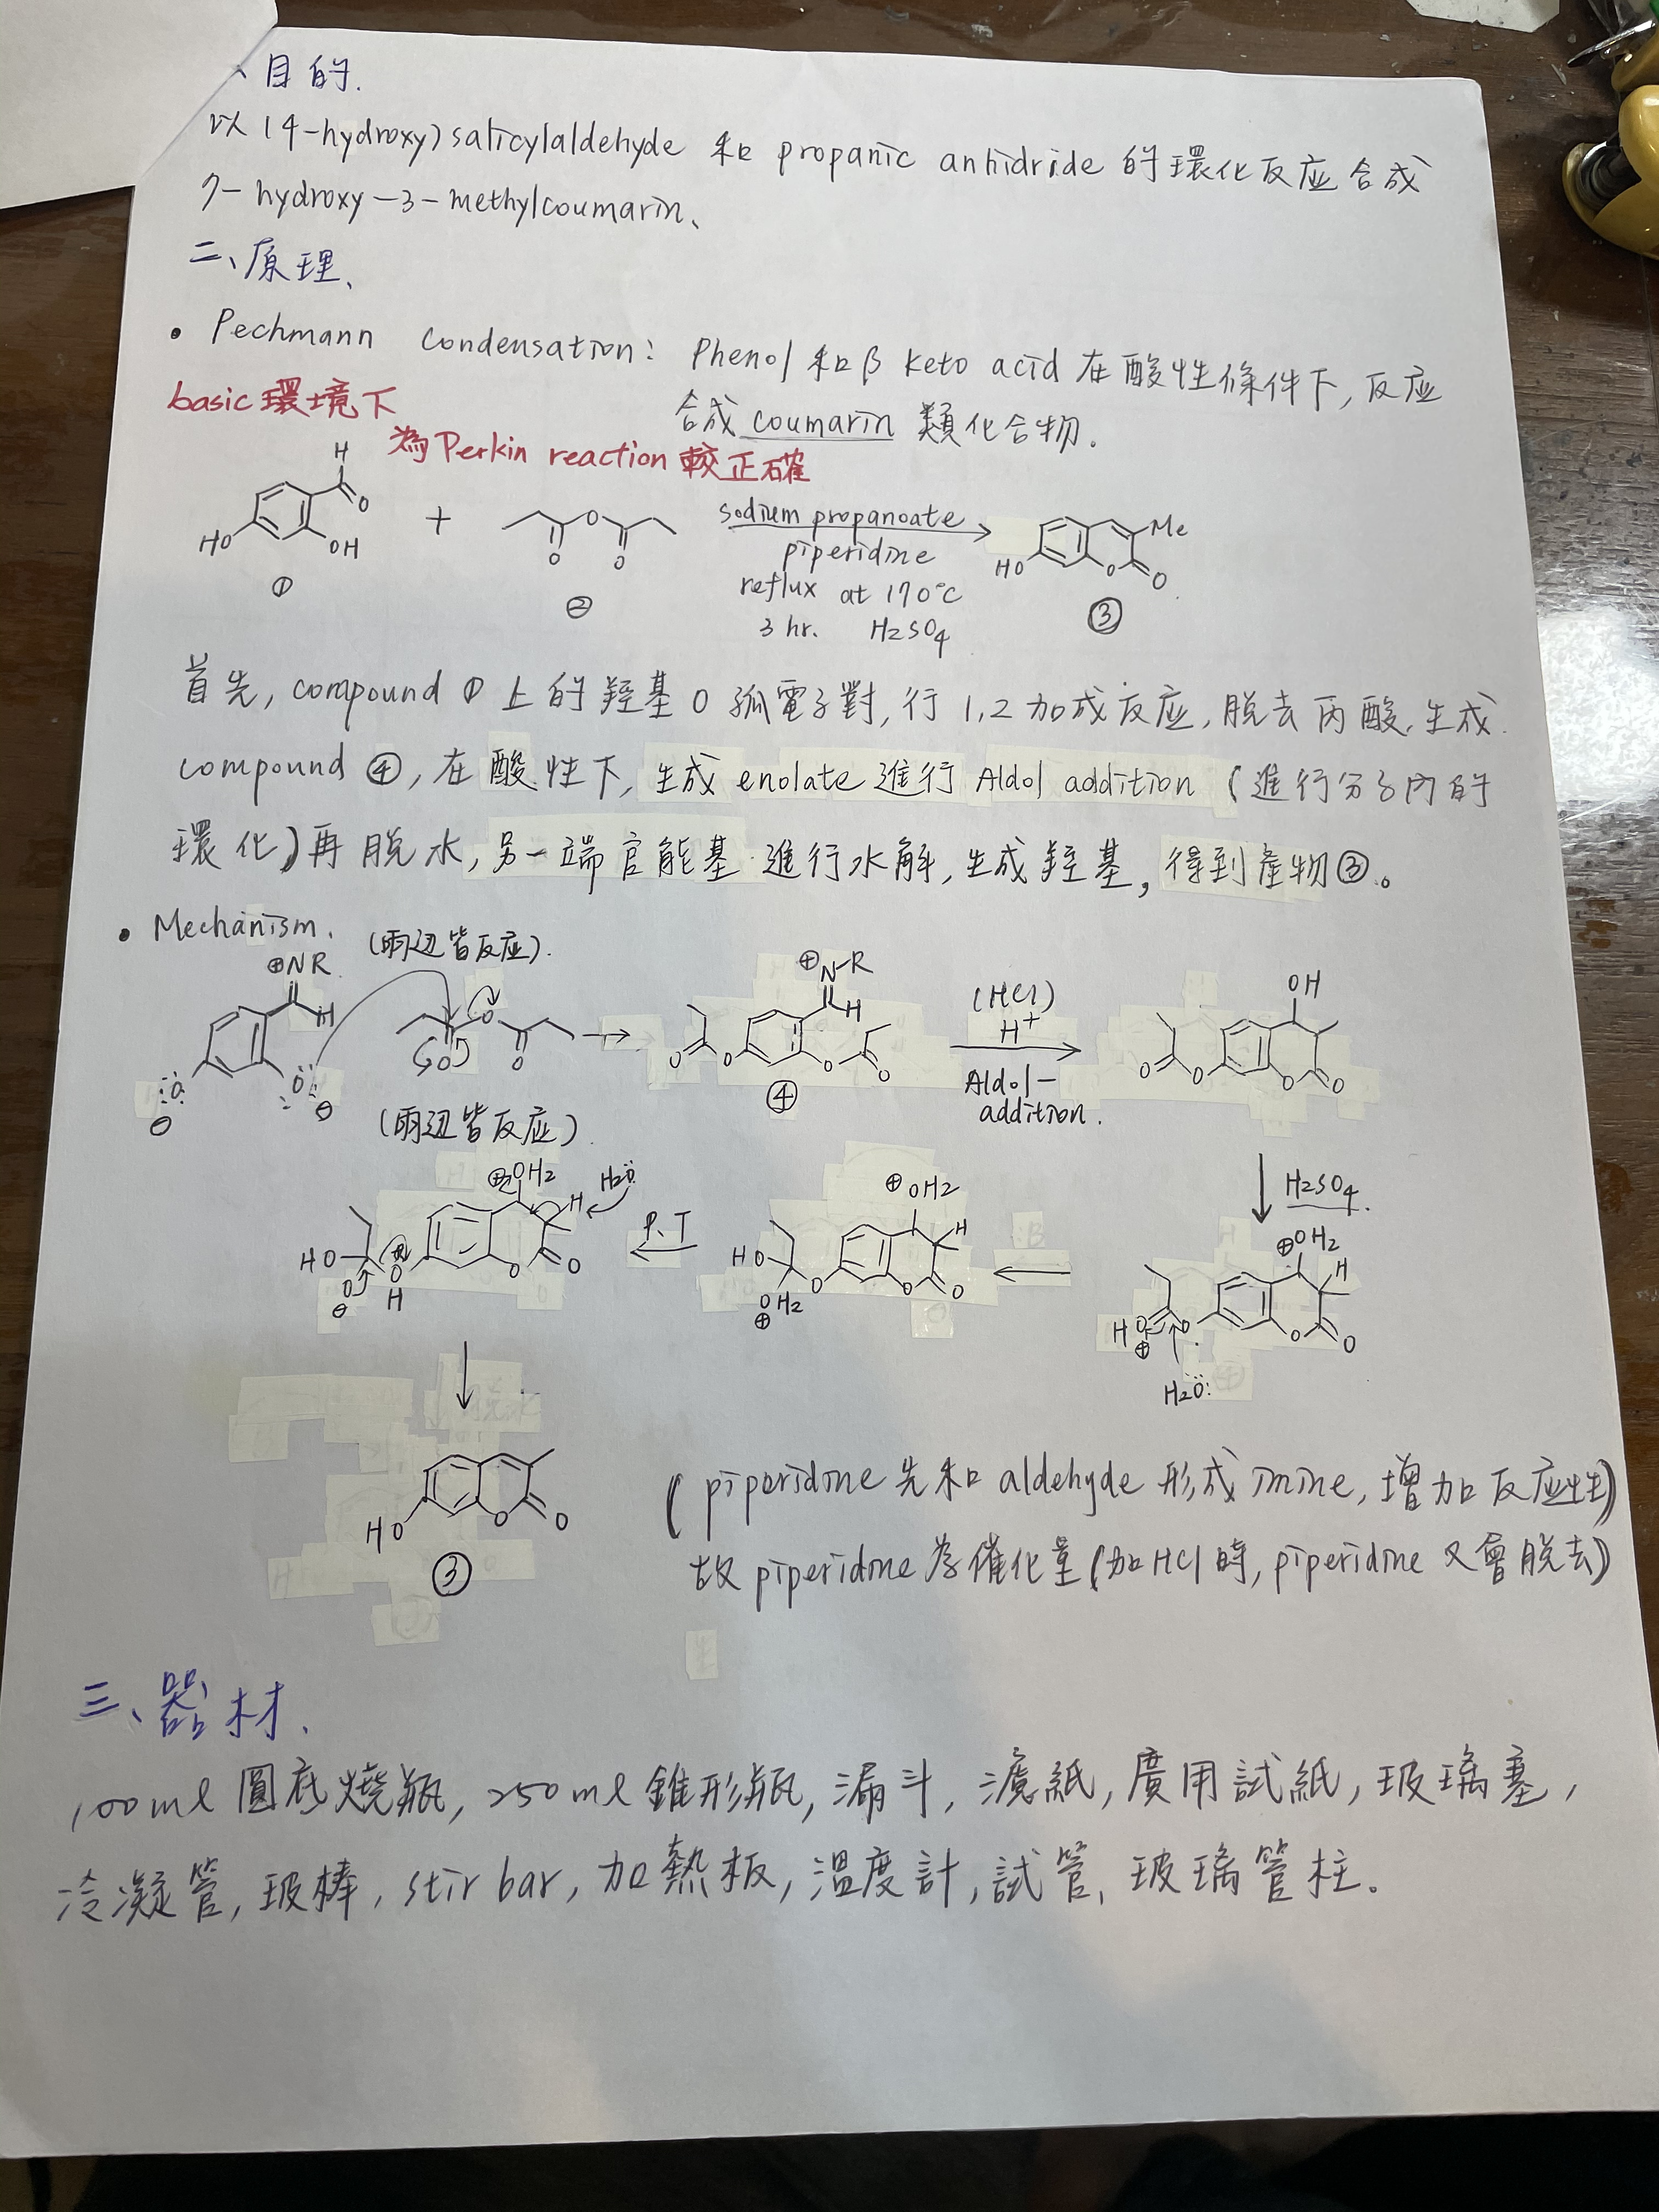 、目的.
以(4-hydroxy)salicylaldehyde 和 propanic anhidride 的環化反应合成
7-hydroxy-3-methylcoumarin、
二、原理、
• Pechmann condensation: Phenol 和 β keto acid 在酸性條件下, 反应
合成 coumarin 類化合物.
basic 環境下
為 Perkin reaction 較正確
H
O
HO
OH
①
+
O
O
O
②
sodium propanoate
piperidine
reflux at 170°C
3 hr. H2SO4
Me
HO
O
O
③
首先, compound ① 上的羥基 O 孤電子對, 行 1,2 加成反应, 脱去丙酸, 生成
compound ④, 在酸性下, 生成 enolate 進行 Aldol addition (進行分子內的
環化)再脱水, 另一端官能基進行水解, 生成羥基, 得到產物③。
• Mechanism. (兩边皆反应).
⊕NR
H
O
O
O
:O:
⊖
:O:
⊖
(兩边皆反应).
⊕N-R
H
O
O
O
O
④
(HCl)
H+
Aldol-
addition.
OH
O
O
O
O
H2SO4
⊕OH2
H
HO
⊕
O
O
O
H2O:
⊕OH2
H
HO
O
O
O
OH2
⊕
P.T
⊕OH2
H
H2O
HO
O
⊖
⊕
O
H
O
O
HO
O
O
③
(piperidine 先和 aldehyde 形成 imine, 增加反应性)
故 piperidine 為催化量(加HCl時, piperidine 又會脱去)
三、器材、
100ml 圓底燒瓶, 250ml 錐形瓶, 漏斗, 濾紙, 廣用試紙, 玻璃塞,
冷凝管, 玻棒, stir bar, 加熱板, 溫度計, 試管、玻璃管柱。